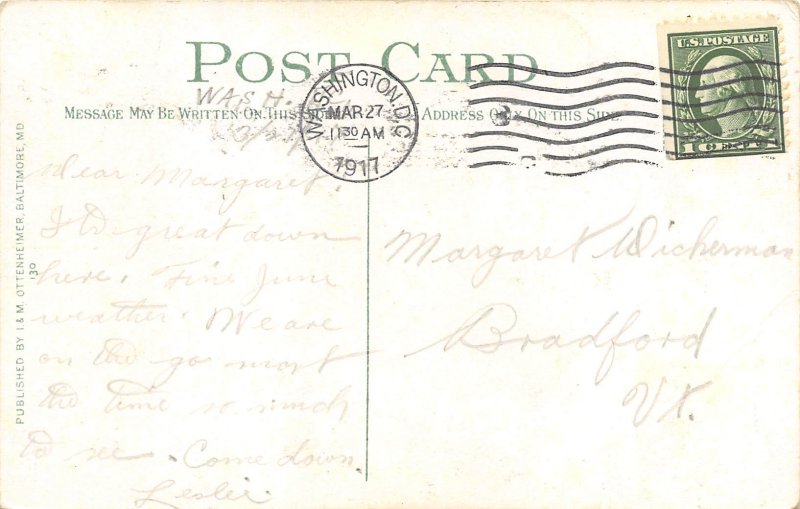 POST CARD
WASH.
3/27
MESSAGE MAY BE WRITTEN ON THIS SIDE
ADDRESS ONLY ON THIS SIDE
WASHINGTON, D.C.
MAR 27
11 30 AM
1917
U.S. POSTAGE
1 CENT 1
PUBLISHED BY I. & M. OTTENHEIMER, BALTIMORE, MD
130
Dear Margaret,
It's great down
here. Fine June
weather. We are
on the go most
the time so much
to see. Come down.
Leslie.
Margaret Wickerman
Bradford
Vt.